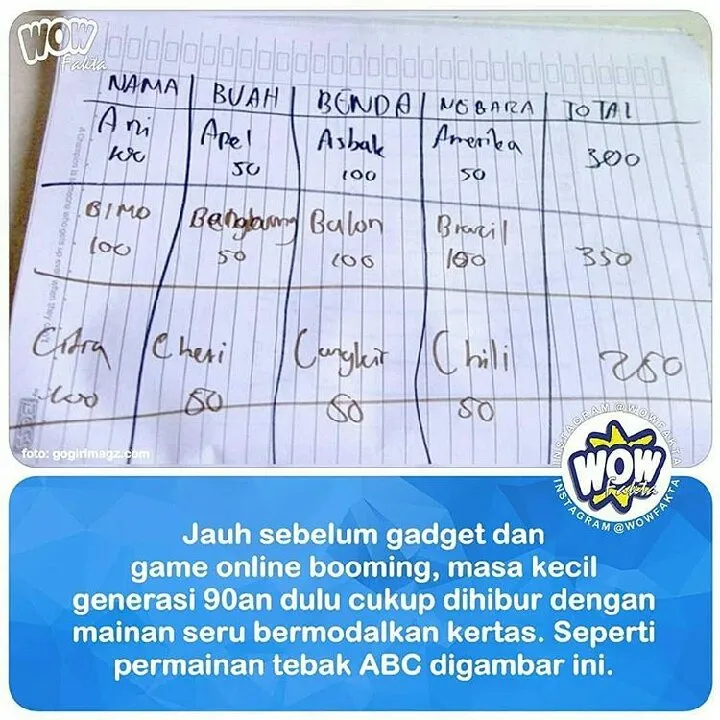 WOW
Fakta
NAMA BUAH BENDA NEGARA TOTAL
Ani Apel Asbak Amerika
100 50 100 50 300
BIMO Bengkuang Balon Brazil
100 50 100 100 350
Citra Cheri Cangkir Chili
100 50 50 50 250
foto: gogirlmagz.com
INSTAGRAM @WOWFAKTA
WOW
Fakta
INSTAGRAM @WOWFAKTA
Jauh sebelum gadget dan
game online booming, masa kecil
generasi 90an dulu cukup dihibur dengan
mainan seru bermodalkan kertas. Seperti
permainan tebak ABC digambar ini.